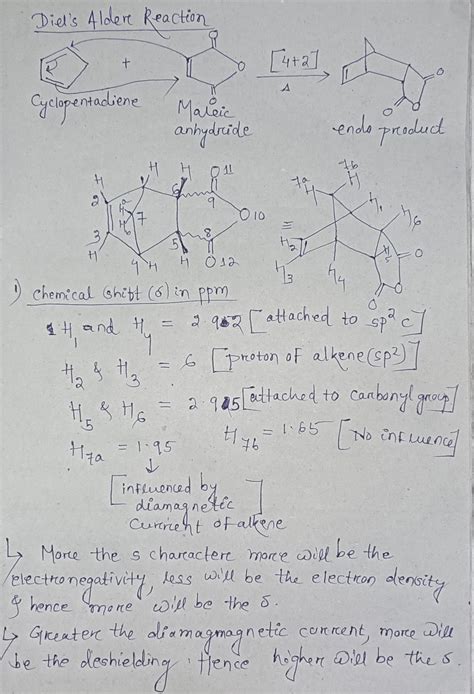 Diel's Aldere Reaction
+
[4+2]
Δ
O
O
O
O
O
O
Cyclopentadiene
Maleic
anhydride
endo product
H H H O 11
2 1 6 9
Ha 7
Hb
O 10
3 4 5 8
H H H O 12
7a H
7b H
H1
H6
≡
H2
H3
H4
H5
O
O
O
1) Chemical shift (δ) in ppm
H1 and H4 = 2.92 [attached to sp2 c]
H2 & H3 = 6 [proton of alkene (sp2)]
H5 & H6 = 2.95 [attached to carbonyl group]
H7a = 1.95 H7b = 1.65 [No influence]
↓
[influenced by
diamagnetic
current of alkene]
↳ More the s charactere more will be the
electronegativity, less will be the electron density
& hence more will be the δ.
↳ Greater the diamagmagnetic current, more will
be the deshielding. Hence higher will be the δ.